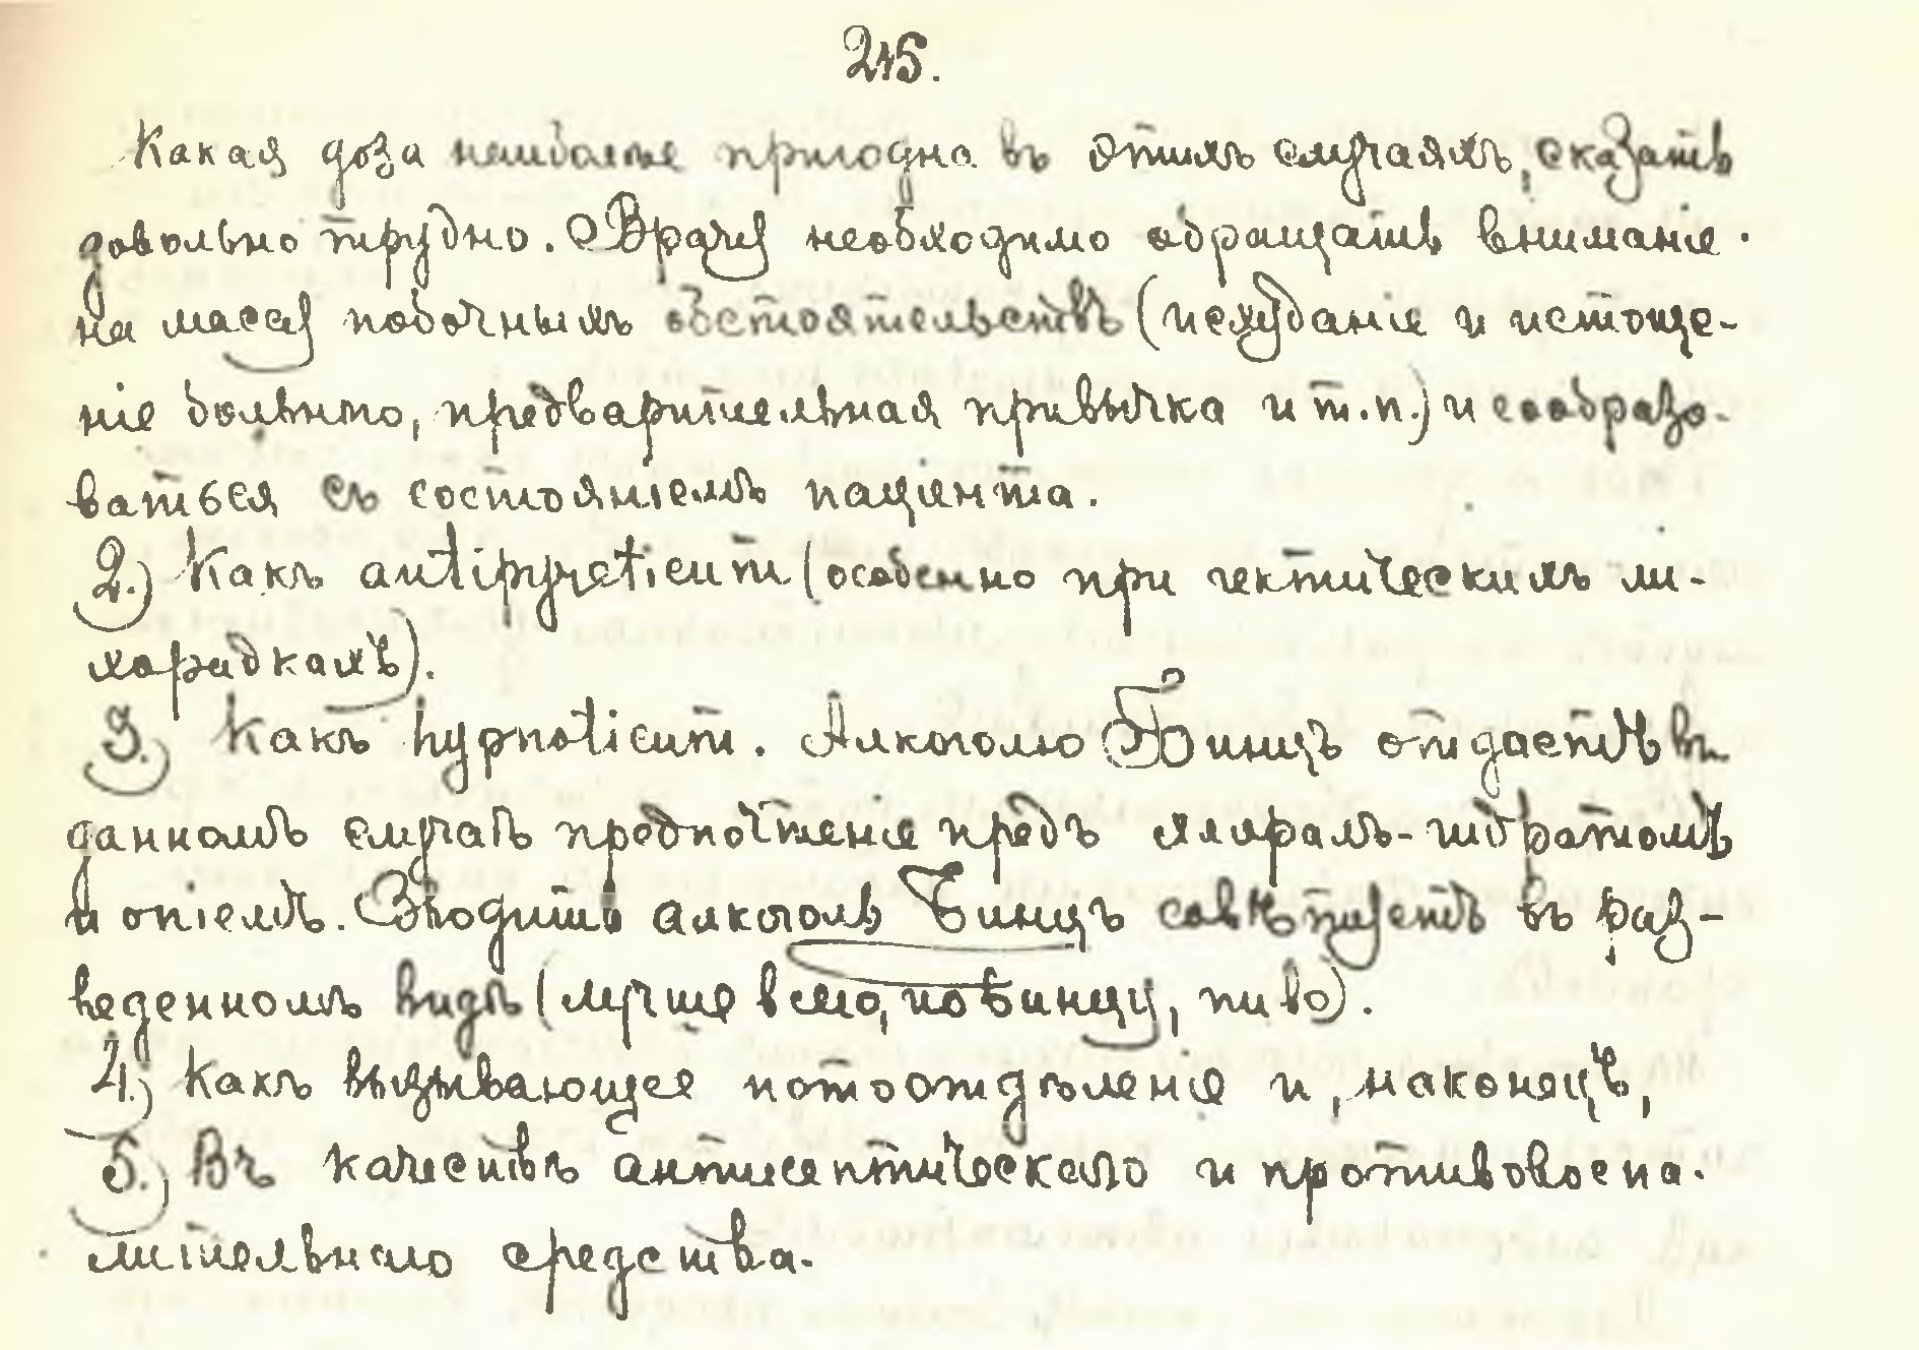 245.
Какая доза наиболѣе пригодна въ этихъ случаяхъ, сказать
довольно трудно. Врачу необходимо обращать вниманіе
на массу побочныхъ обстоятельствъ (исхуданіе и истоще-
ніе больного, предварительная привычка и т.п.) и сообразо-
ваться съ состояніемъ паціента.
2.) Какъ antipyreticum (особенно при гектическихъ ли-
хорадкахъ).
3.) Какъ hypnoticum. Алкоголю Бинцъ отдаетъ въ
данномъ случаѣ предпочтеніе предъ хлоралъ-гидратомъ
и опіемъ. Вводить алкоголь Бинцъ совѣтуетъ въ раз-
веденномъ видѣ (лучше всего, по Бинцу, пиво).
4.) Какъ вызывающее потоотдѣленіе и, наконецъ,
5.) Въ качествѣ антисептическаго и противовоспа-
лительнаго средства.